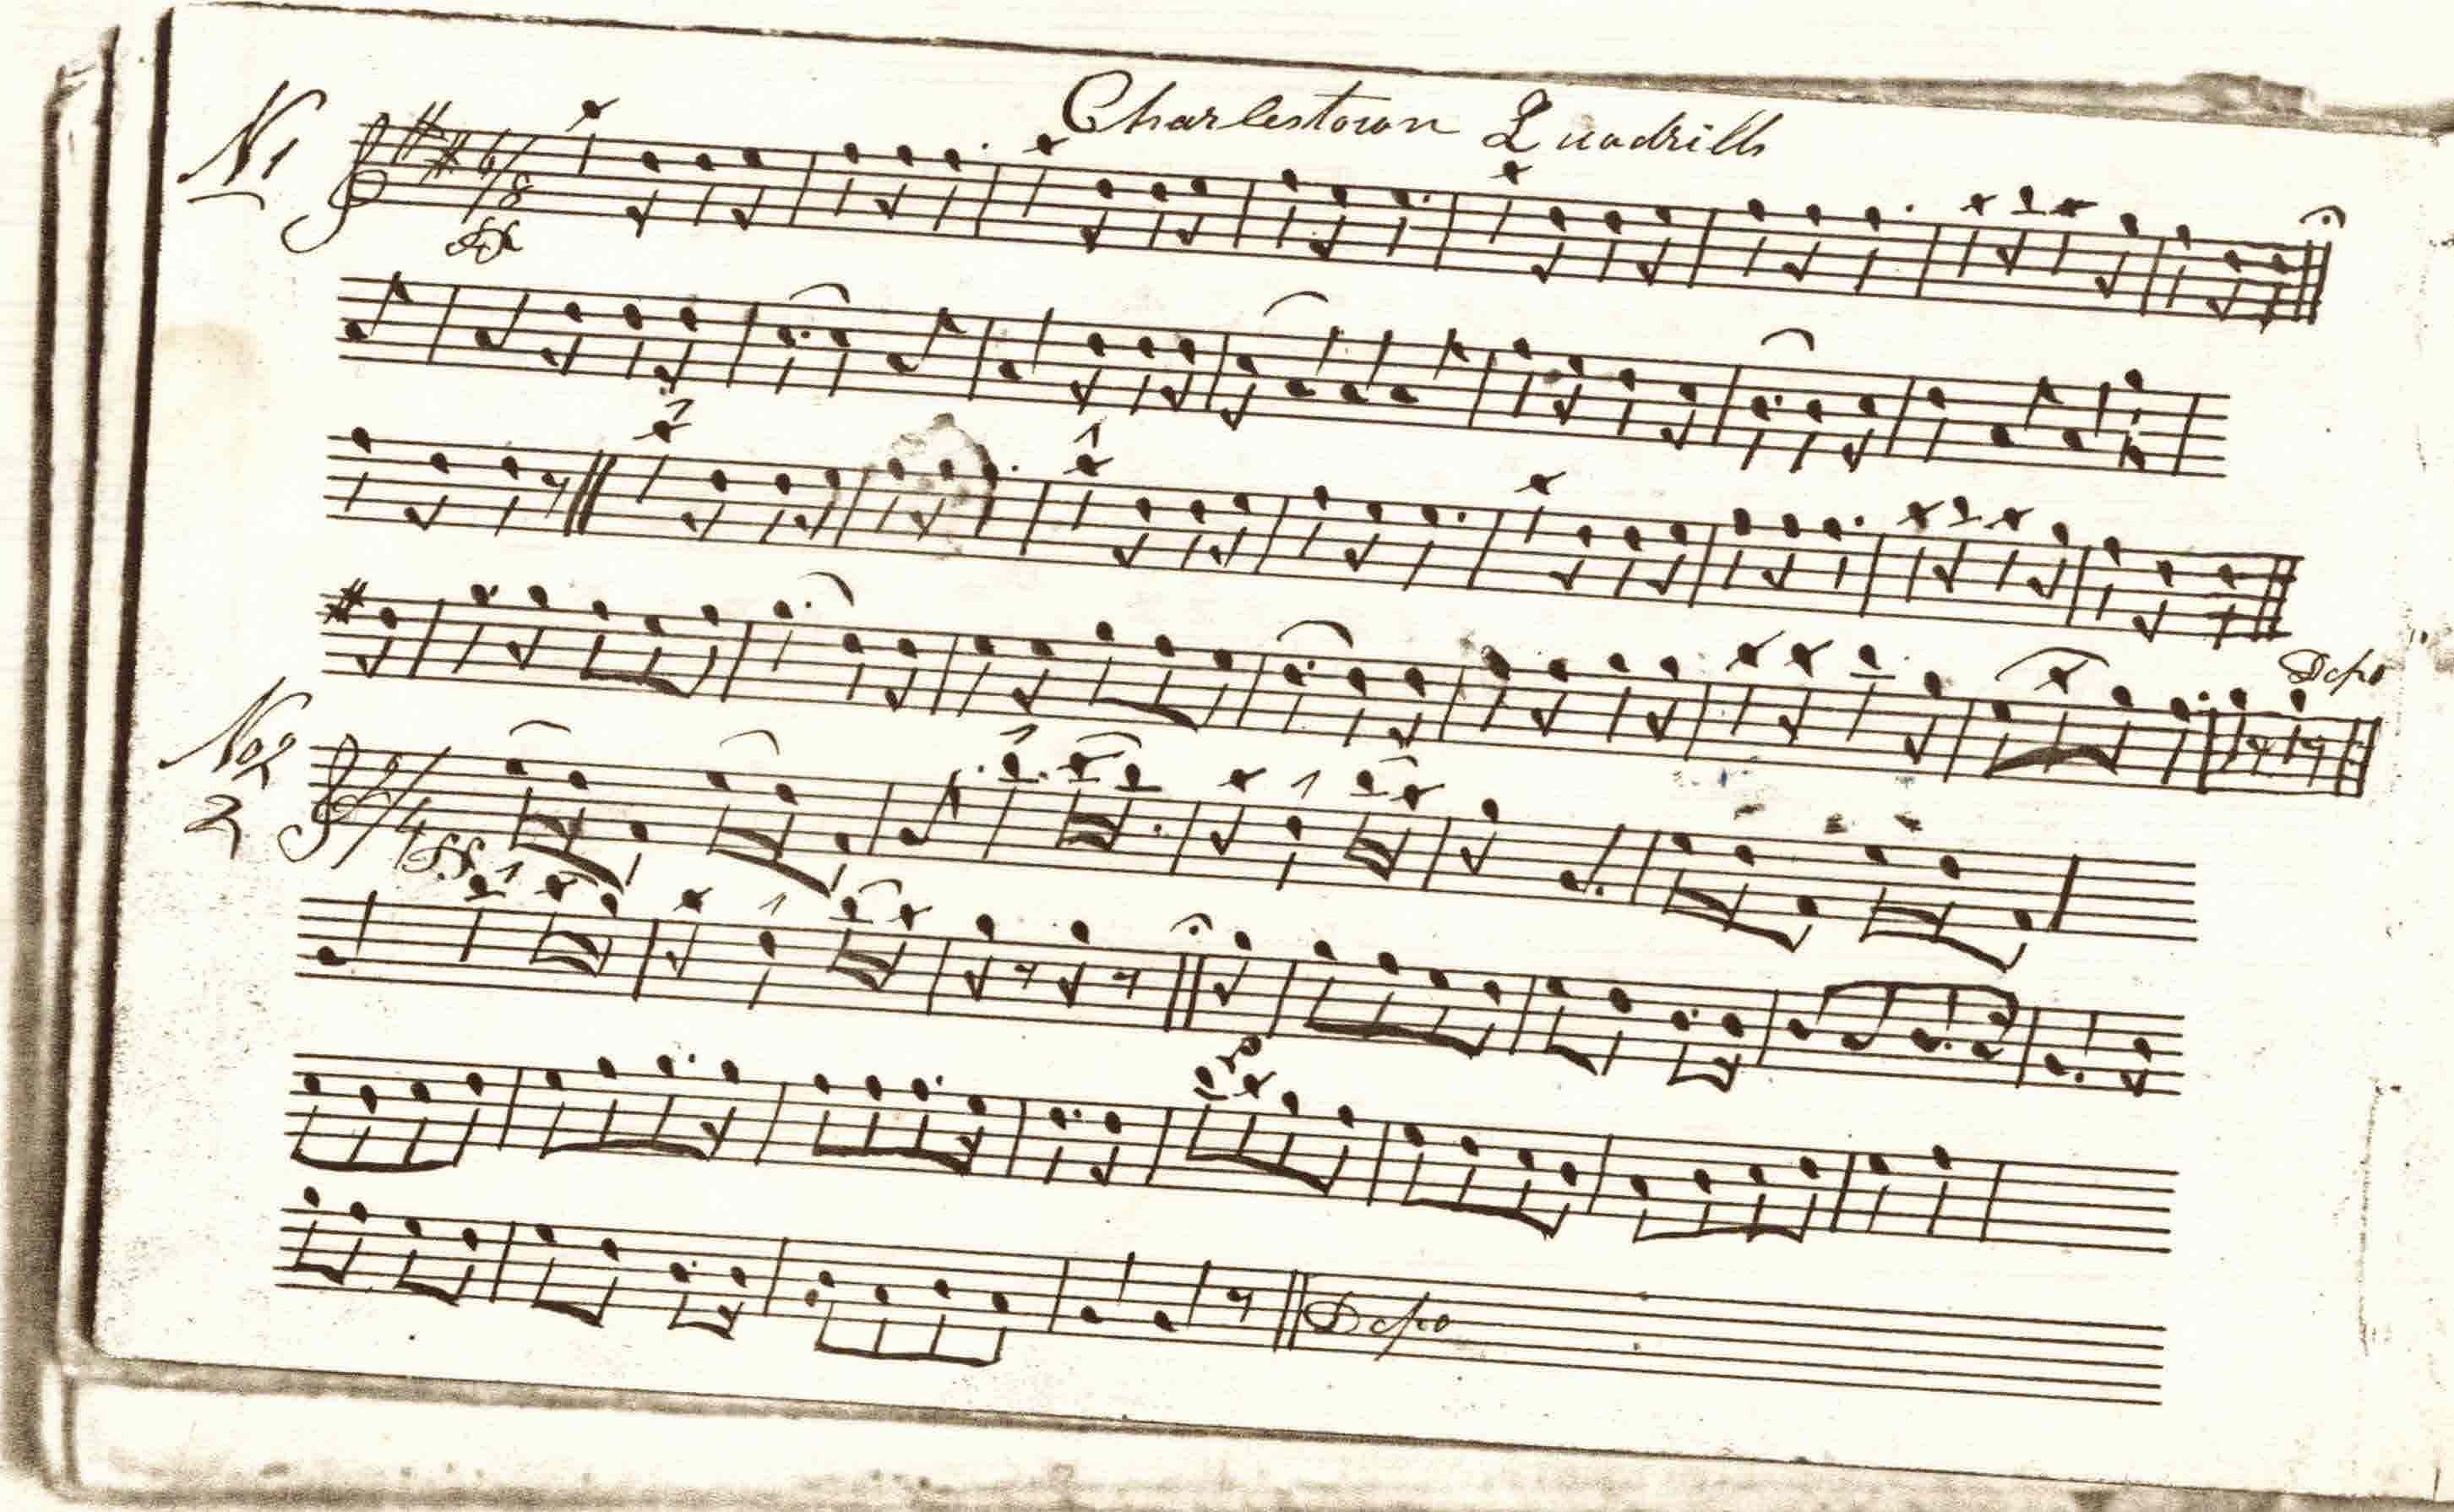 Charlestown Quadrills
N1
6/8
Dcpo
No2
2
2/4
Dcpo